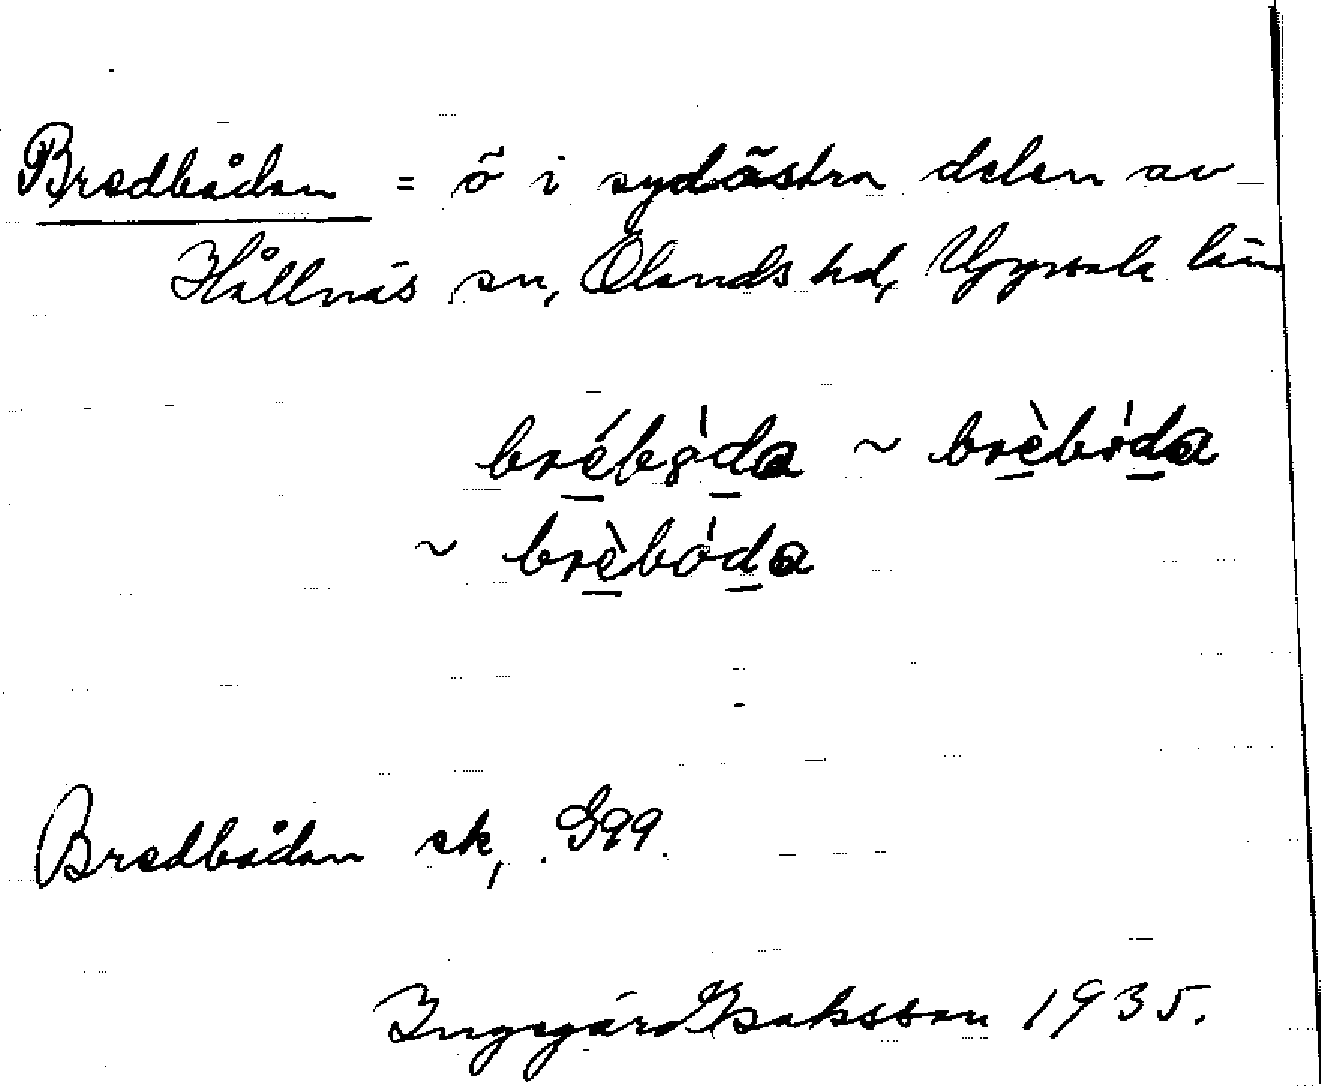 Bredbådan = ö i sydöstra delen av
Hållnäs sn, Olands hd, Uppsala län
brébòda ~ brèbòda
~ brèbòda
Bredbådan ek, G99.
Ingegärd Isaksson 1935.